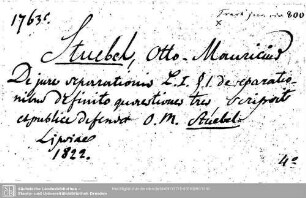 1763c.
Stuebel, Otto-Mauricius
De jure separationis L. I. § 1. de separatio-
nibus definito quaestiones tres scripsit
et publice defendet O. M. Stuebel.
Lipsiae
1822.
4°
Sächsische Landesbibliothek -
Staats- und Universitätsbibliothek Dresden